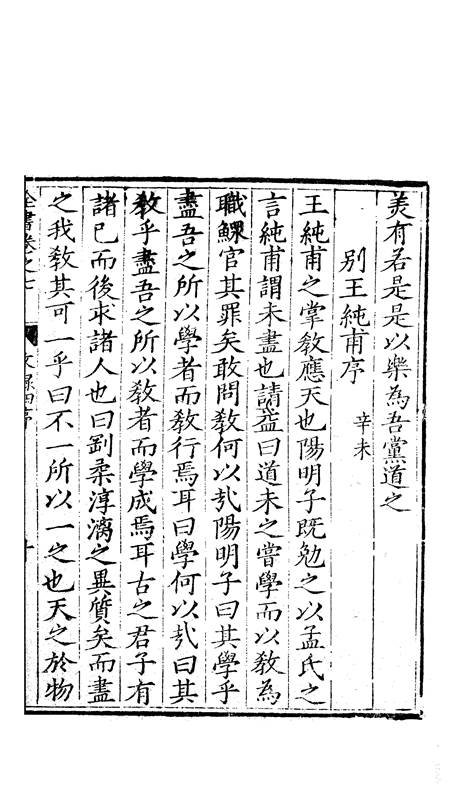 美有若是是以樂為吾黨道之
別王純甫序 辛未
王純甫之掌敎應天也陽明子旣勉之以孟氏之
言純甫謂未盡也請益曰道未之嘗學而以敎為
職鰥官其罪矣敢問敎何以㢤陽明子曰其學乎
盡吾之所以學者而敎行焉耳曰學何以㢤曰其
敎乎盡吾之所以敎者而學成焉耳古之君子有
諸已而後求諸人也曰剛柔淳漓之異質矣而盡
之我敎其可一乎曰不一所以一之也天之於物
全書卷之七 文錄四序 十